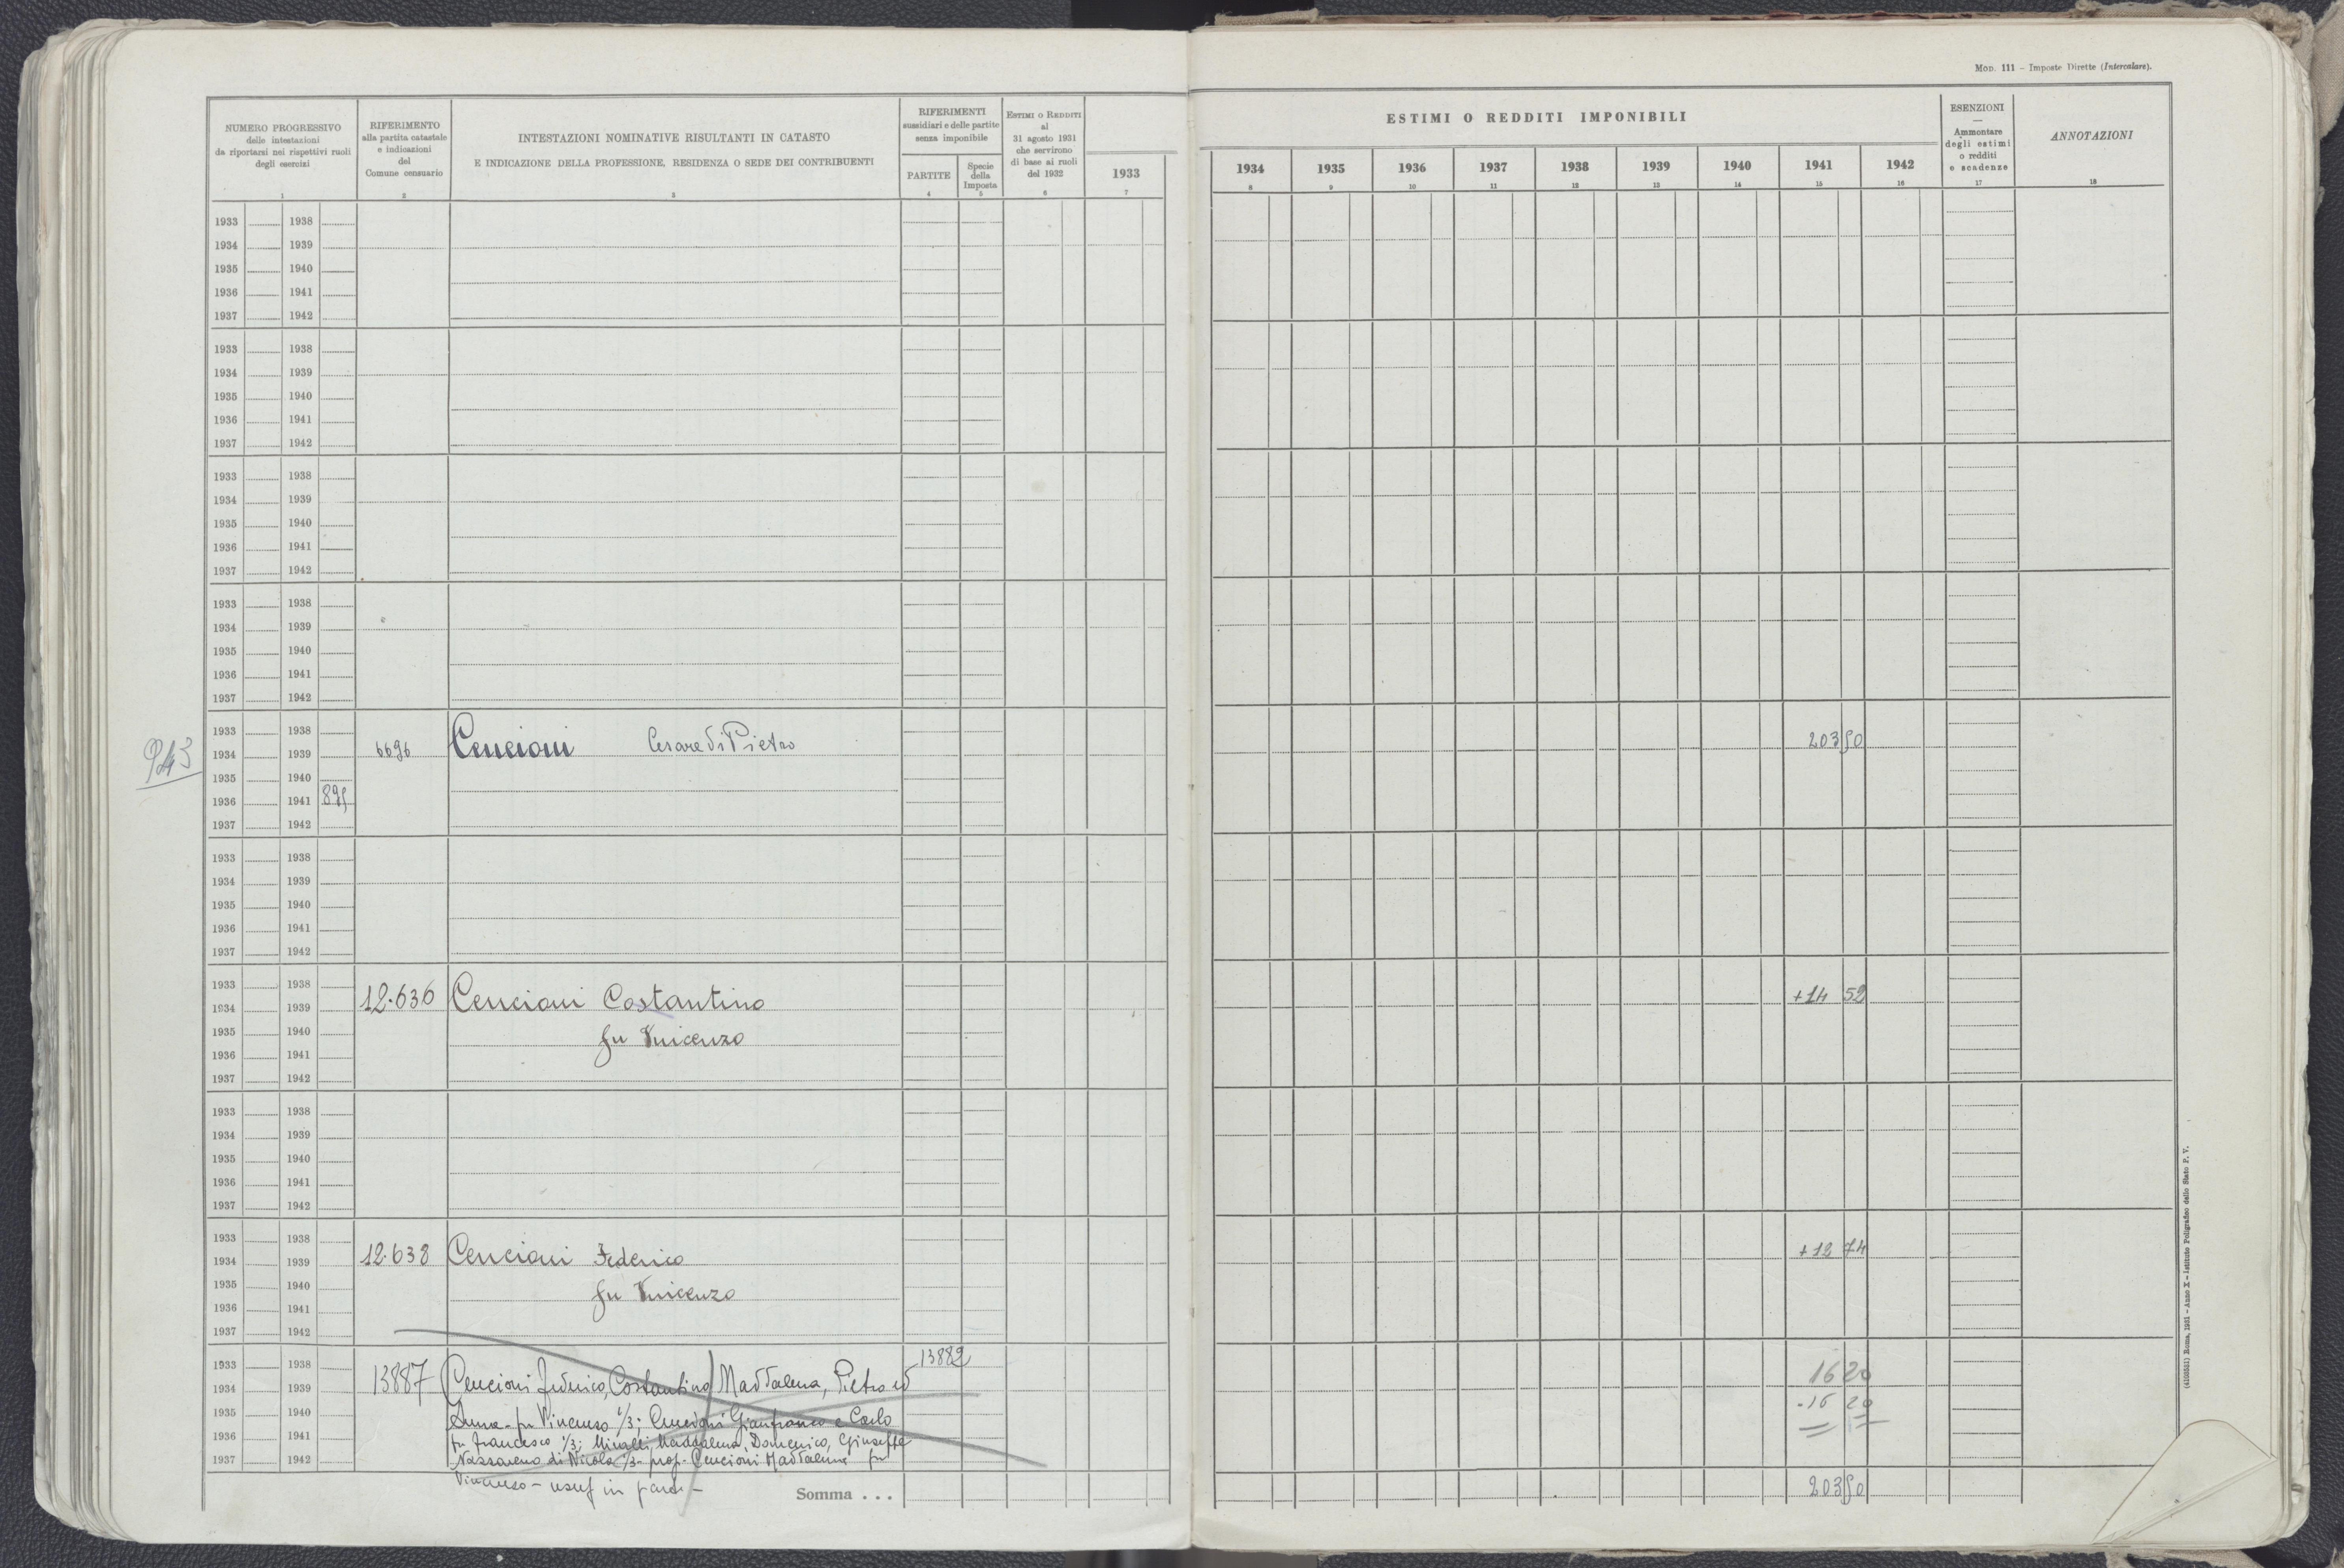 Mod. 111 – Imposte Dirette (Intercalare).
NUMERO PROGRESSIVO
delle intestazioni
da riportarsi nei rispettivi ruoli
degli esercizi
1
RIFERIMENTO
alla partita catastale
e indicazioni
del
Comune censuario
2
INTESTAZIONI NOMINATIVE RISULTANTI IN CATASTO
E INDICAZIONE DELLA PROFESSIONE, RESIDENZA O SEDE DEI CONTRIBUENTI
3
RIFERIMENTI
sussidiari e delle partite
senza imponibile
PARTITE
4
Specie
della
Imposta
5
Estimi o Redditi
al
31 agosto 1931
che servirono
di base ai ruoli
del 1932
6
1933
7
ESTIMI O REDDITI IMPONIBILI
1934 1935 1936 1937 1938 1939 1940 1941 1942
8 9 10 11 12 13 14 15 16
ESENZIONI
—
Ammontare
degli estimi
o redditi
e scadenze
17
ANNOTAZIONI
18
1933 1938
1934 1939
1935 1940
1936 1941
1937 1942
1933 1938
1934 1939
1935 1940
1936 1941
1937 1942
1933 1938
1934 1939
1935 1940
1936 1941
1937 1942
1933 1938
1934 1939
1935 1940
1936 1941
1937 1942
943
1933 1938
1934 1939 6696 Cencioni Cesare di Pietro 203 50
1935 1940
1936 1941 895
1937 1942
1933 1938
1934 1939
1935 1940
1936 1941
1937 1942
1933 1938
1934 1939 12.636 Cencioni Costantino +14 52
1935 1940 fu Vincenzo
1936 1941
1937 1942
1933 1938
1934 1939
1935 1940
1936 1941
1937 1942
1933 1938
1934 1939 12.638 Cencioni Federico +12 74
1935 1940 fu Vincenzo
1936 1941
1937 1942
1933 1938 13882
1934 1939 13887 Cencioni Federico, Costantino Maddalena, Pietro ed 16 20
1935 1940 Anna fu Vincenzo 1/3; Cencioni Gianfranco e Carlo -16 20
1936 1941 fu Francesco 1/3; Maddalena, Domenico, Giuseppe
1937 1942 Nazzareno di Nicola 1/3 - prop. Cencioni Maddalena fu
Vincenzo - usuf in parte -
Somma . . . 203 50
(4105531) Roma, 1931 – Anno X – Istituto Poligrafico dello Stato P. V.